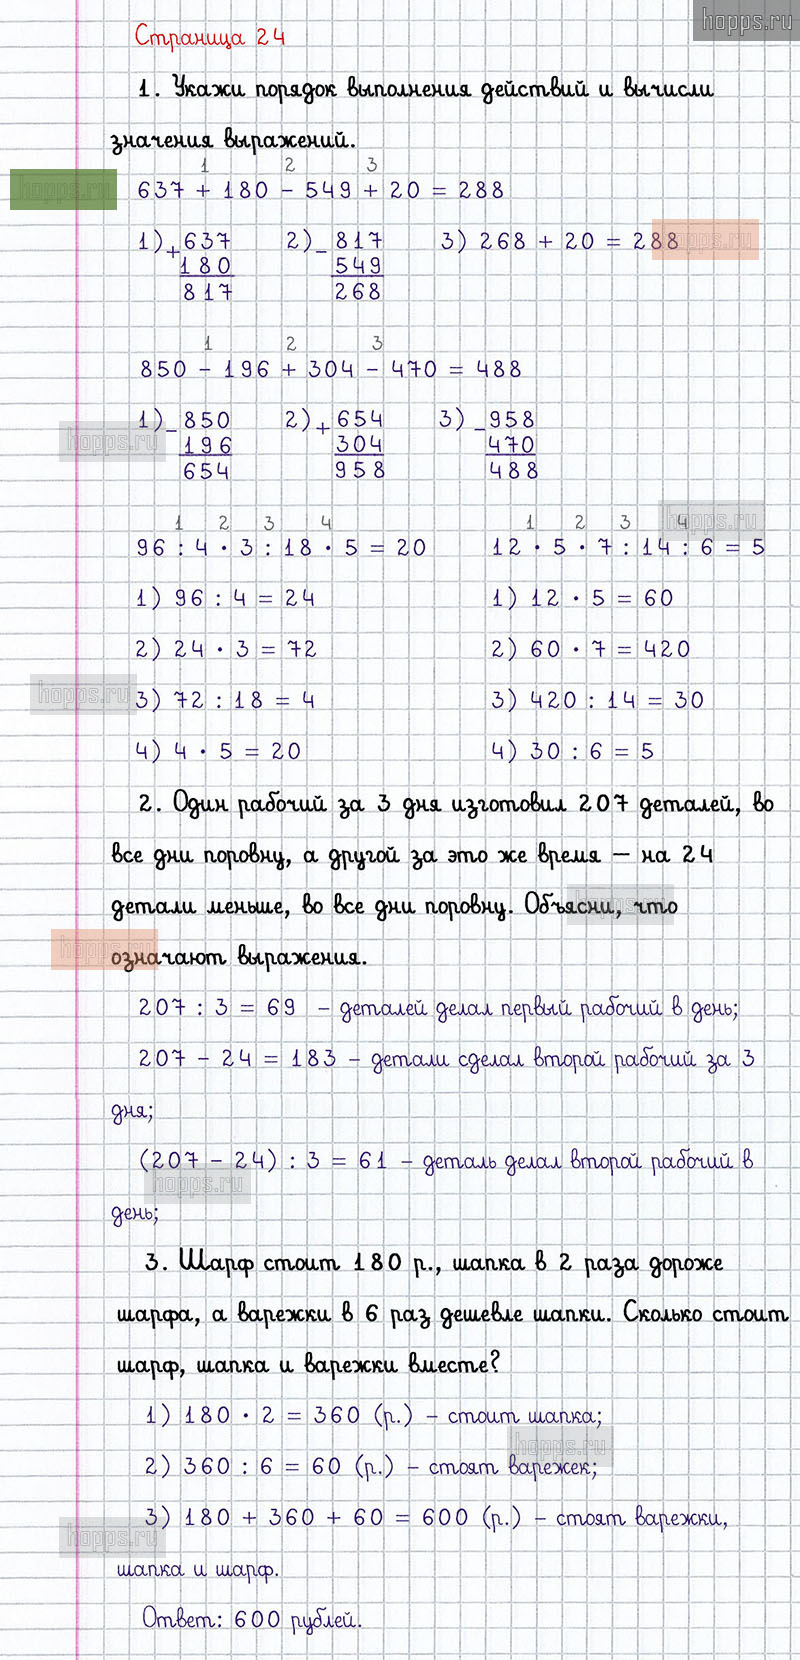 hopps.ru
Страница 24
1. Укажи порядок выполнения действий и вычисли
значения выражений.
1 2 3
637 + 180 - 549 + 20 = 288
hopps.ru
1) + 637 2) - 817 3) 268 + 20 = 288
hopps.ru
180 549
817 268
1 2 3
850 - 196 + 304 - 470 = 488
1) - 850 2) + 654 3) - 958
hopps.ru
196 304 470
654 958 488
hopps.ru
1 2 3 4 1 2 3 4
96 : 4 · 3 : 18 · 5 = 20 12 · 5 · 7 : 14 : 6 = 5
1) 96 : 4 = 24 1) 12 · 5 = 60
2) 24 · 3 = 72 2) 60 · 7 = 420
hopps.ru
3) 72 : 18 = 4 3) 420 : 14 = 30
4) 4 · 5 = 20 4) 30 : 6 = 5
2. Один рабочий за 3 дня изготовил 207 деталей, во
все дни поровну, а другой за это же время – на 24
детали меньше, во все дни поровну. Объясни, что
hopps.ru
означают выражения.
hopps.ru
207 : 3 = 69 – деталей делал первый рабочий в день;
207 - 24 = 183 – детали сделал второй рабочий за 3
дня;
(207 - 24) : 3 = 61 – деталь делал второй рабочий в
hopps.ru
день;
3. Шарф стоит 180 р., шапка в 2 раза дороже
шарфа, а варежки в 6 раз дешевле шапки. Сколько стоит
шарф, шапка и варежки вместе?
1) 180 · 2 = 360 (р.) – стоит шапка;
hopps.ru
2) 360 : 6 = 60 (р.) – стоят варежек;
3) 180 + 360 + 60 = 600 (р.) – стоят варежки,
hopps.ru
шапка и шарф.
Ответ: 600 рублей.